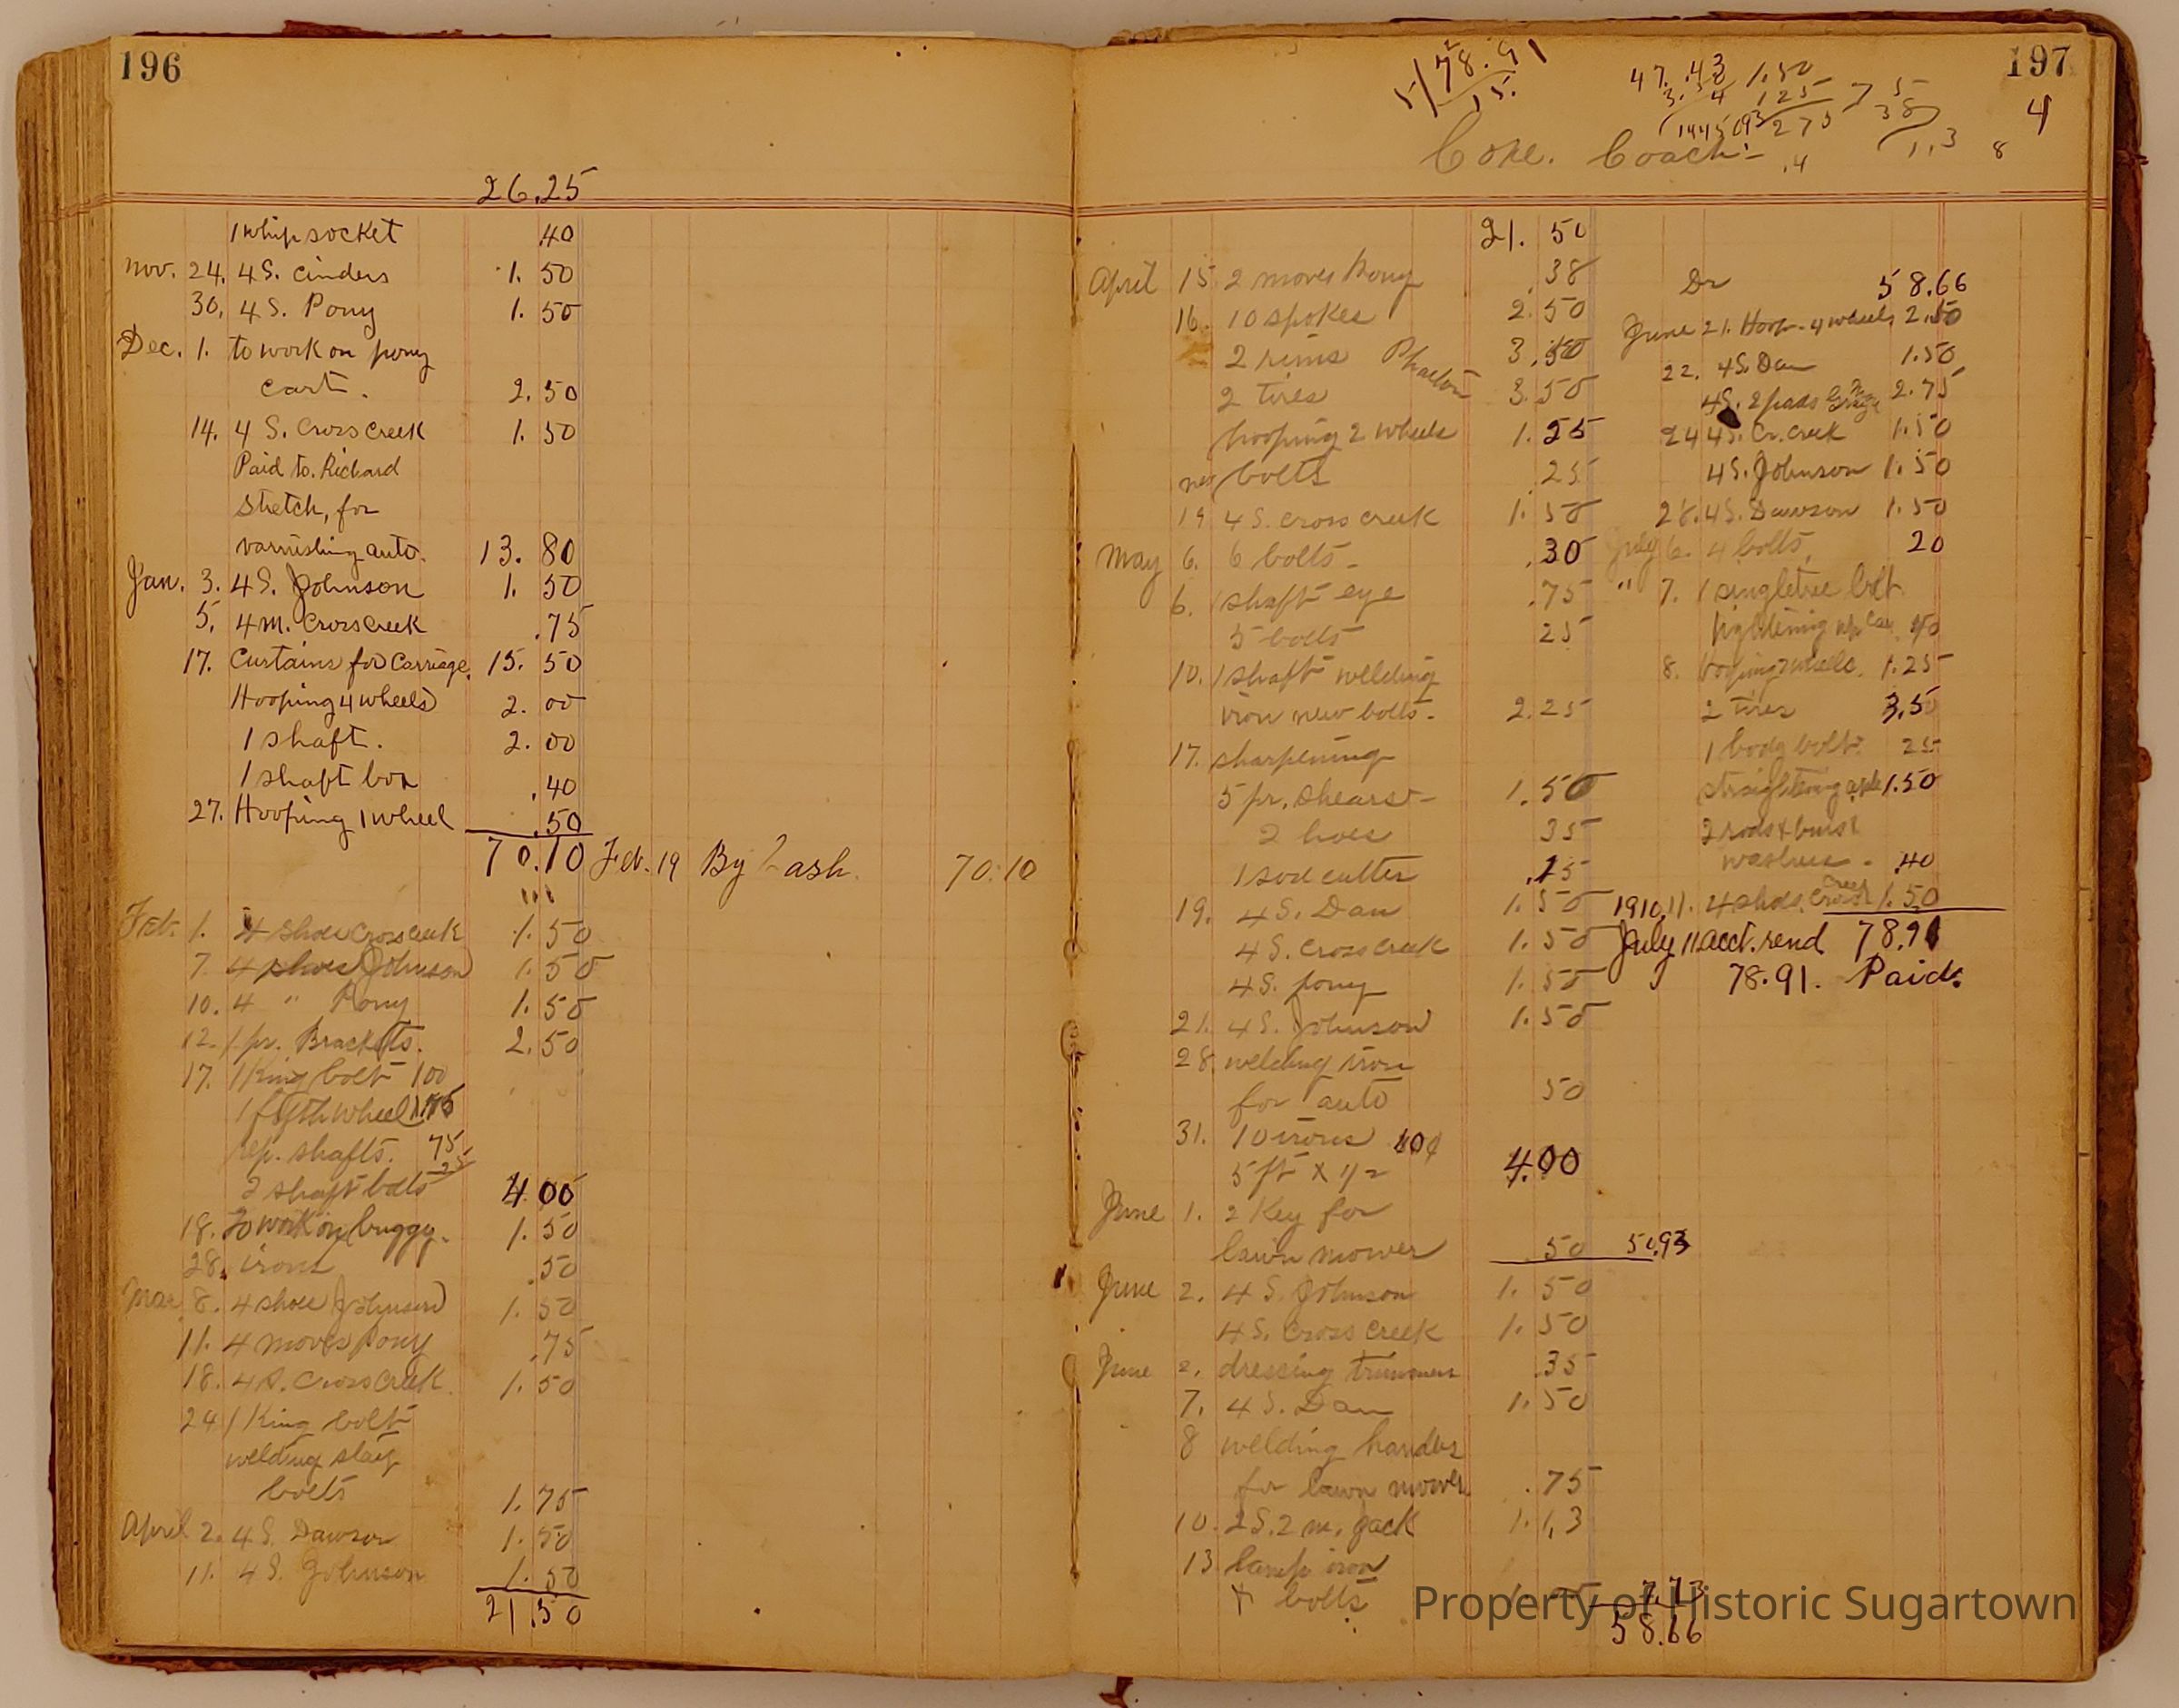 196
26.25
1 whip socket .40
Nov. 24. 4 S. Cinders 1.50
30. 4 S. Pony 1.50
Dec. 1. to work on pony
cart. 2.50
14. 4 S. Cross creek 1.50
Paid to. Richard
Stretch, for
varnishing auto. 13.80
Jan. 3. 4 S. Johnson 1.50
5. 4 m. Crosscreek .75
17. Curtains for Carriage. 15.50
Hooping 4 wheels 2.00
1 shaft. 2.00
1 shaft box .40
27. Hooping 1 wheel .50
70.10 Feb. 19 By Cash. 70.10
Feb. 1. 4 shoes Crosscreek 1.50
7. 4 shoes Johnson 1.50
10. 4 " Pony 1.50
12. 1 pr. Brackets. 2.50
17. 1 King bolt 100
1 fifth wheel
rep. shafts. 75
2 shaft bolts 25 4.00
18. To work on buggy. 1.50
28. irons .50
Mar 8. 4 shoes Johnson 1.50
11. 4 moves Pony .75
18. 4 S. Crosscreek. 1.50
24 1 King bolt
welding slay
bolts 1.75
April 2. 4 S. Dawson 1.50
11. 4 S. Johnson 1.50
21.50
197
5/78.91
15.
47.43 1.50
125
275
4
8
Cope. Coach-
21.50
April 15. 2 moves Pony .38
16. 10 spokes 2.50
2 rims Phaeton 3.50
2 tires 3.50
hooping 2 wheels 1.25
new bolts .25
19 4 S. Cross creek 1.50
May 6. 6 bolts- .30
6. 1 shaft eye .75
5 bolts 25
10. 1 shaft welding
iron new bolts. 2.25
17. sharpening
5 pr. shears- 1.50
2 hoes 35
1 sod cutter .15
19. 4 S. Dan 1.50
4 S. Crosscreek 1.50
4 S. pony 1.50
21. 4 S. Johnson 1.50
28 welding iron
for auto 50
31. 10 irons 40¢
5 ft x 1/2 4.00
June 1. 2 Key for
lawn mower .50 50.93
June 2. 4 S. Johnson 1.50
4 S. Cross Creek 1.50
June 2. dressing trimmers .35
7. 4 S. Dan 1.50
8 welding handles
for lawn mower .75
10. 2 S. 2 m. Jack 1.13
13 lamp iron
+ bolts 7.73
58.66
Dr 58.66
June 21. Hoop. 4 wheels 2.50
22. 4 S. Dan 1.50
4 S. 2 pads 2.75
24 4 S. Cr. Creek 1.50
4 S. Johnson 1.50
28. 4 S. Dawson 1.50
July 6. 4 bolts, 20
" 7. 1 singletree bolt
tightening up 40
8. hooping 2 wheels. 1.25
2 tires 3.50
1 body bolt. 25
straightening axle 1.50
2 rods & burs
washers. .40
1910. 11. 4 shoes Cross Creek 1.50
July 11 acct. rend 78.91
78.91. Paid.
Property of Historic Sugartown